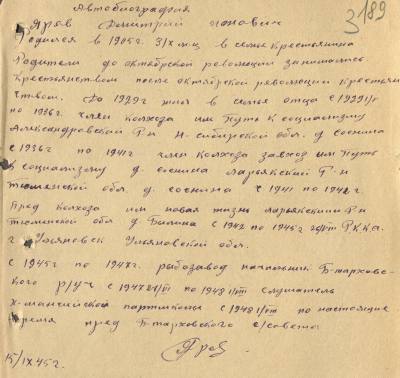 3 189
Автобиография
Яров Дмитрий ионович
Родился в 1905г 3/X м-ц в семье крестьянина
Родители до октябрской революции занимались
крестьянством после октябрской революции крестьян
ством. До 1929г жил в семье отца с 1929 г
по 1936г. член колхоза им Путь к социализму
Александровский Р-н Н-сибирской обл. д соснина
с 1936г по 1941г член колхоза завхоз им Путь
к социализму д. соснина Ларьякский Р-н
тюменской обл. д. соснина с 1941 по 1942г
пред колхоза им новая жизнь Ларьякский Р-н
тюменской обл д Былина с 1942 по 1945г РККА.
г Ульяновск Ульяновской обл.
с 1945г по 1947г. рыбозавод начальник Б-тарховс-
кого р/уч с 1947 по 1948 слушатель
х-мансийской партшколы с 1948 по настоящие
время пред Б-тарховского с/совета
Яров
15/IX 45г.